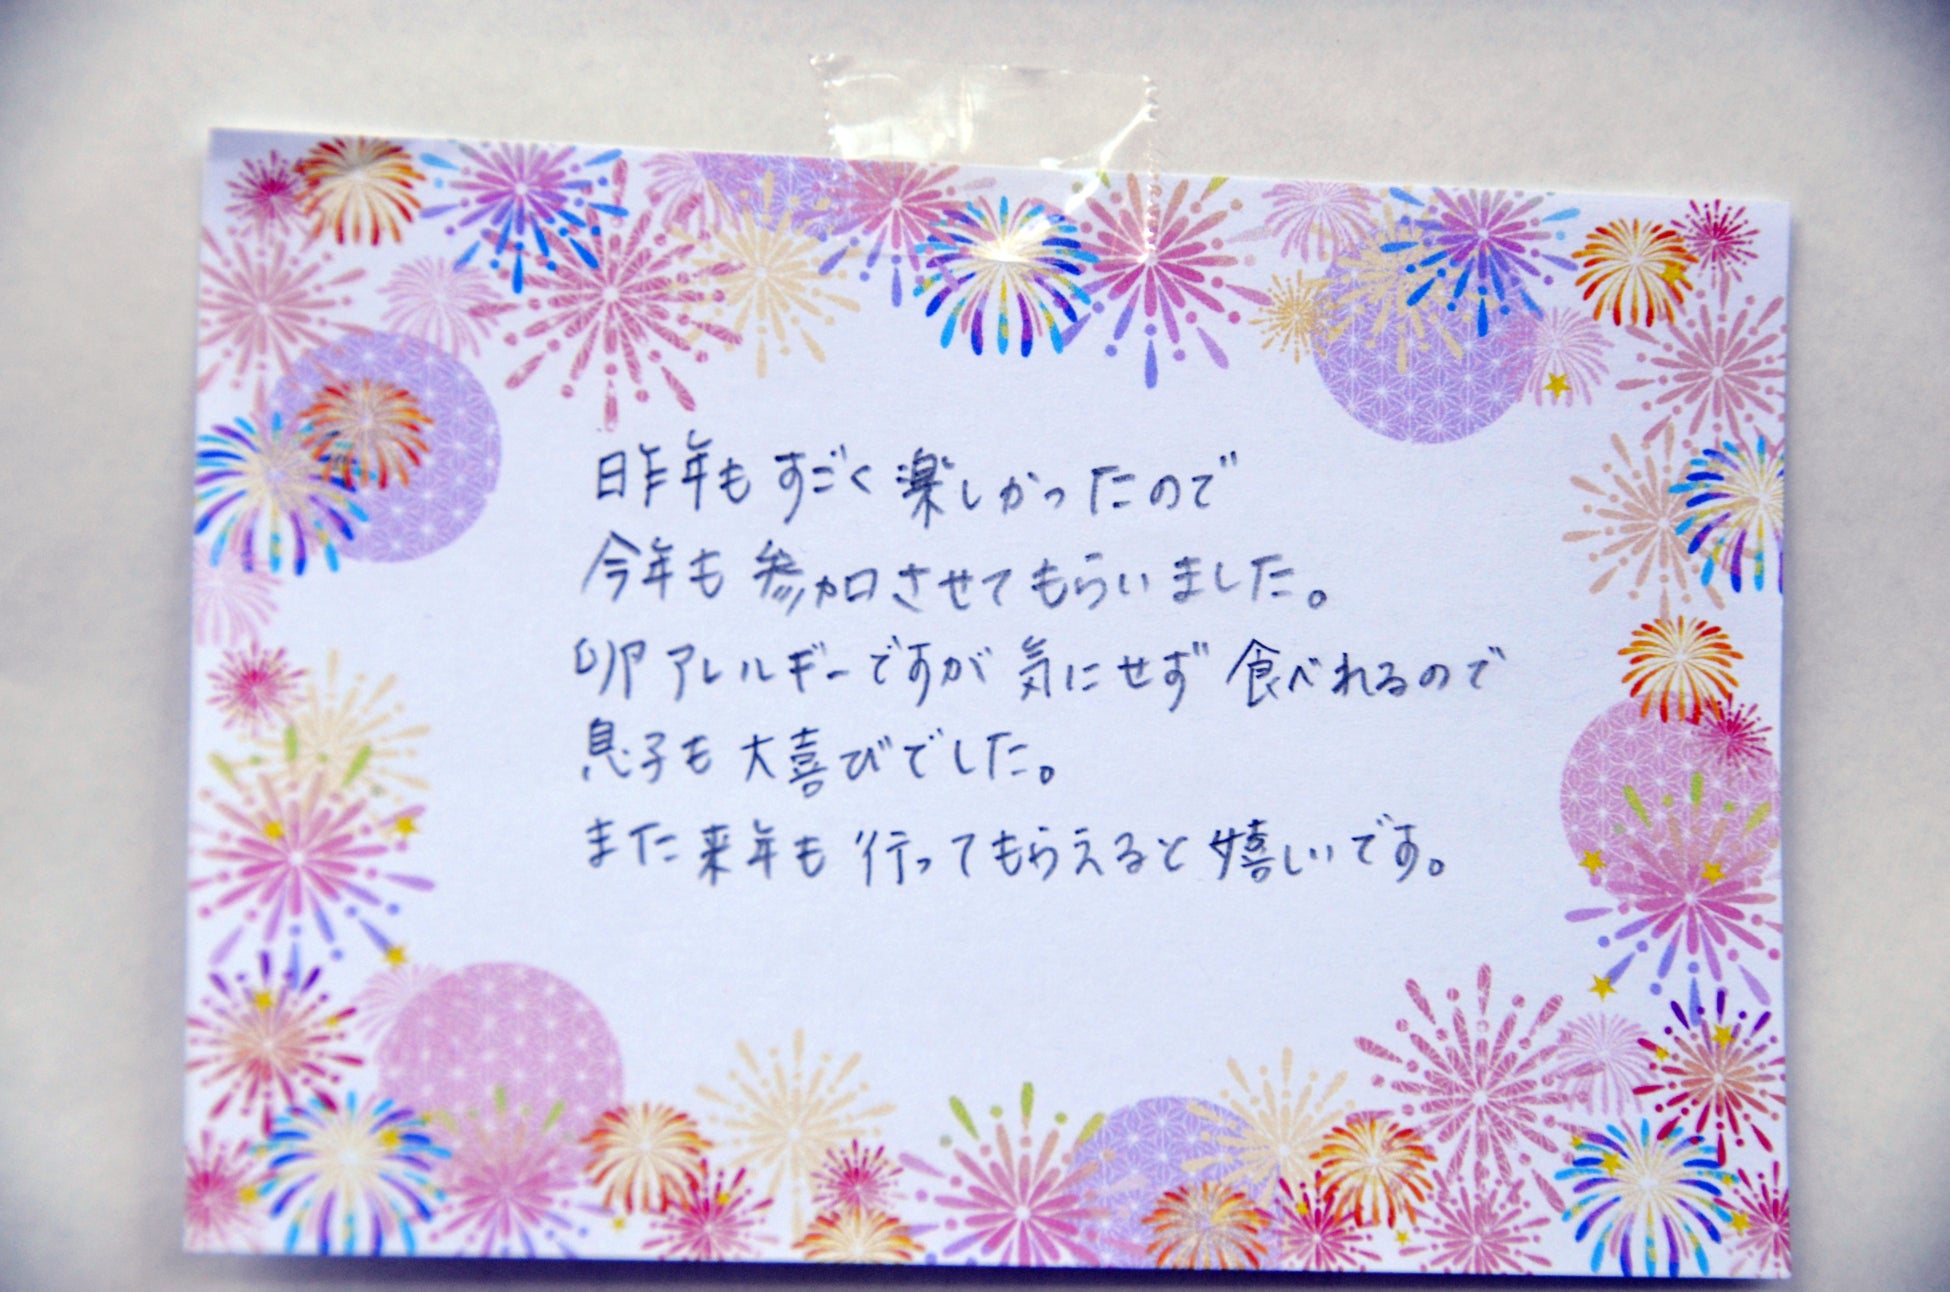 昨年もすごく楽しかったので
今年も参加させてもらいました。
卵アレルギーですが気にせず食べれるので
息子も大喜びでした。
また来年も行ってもらえると嬉しいです。